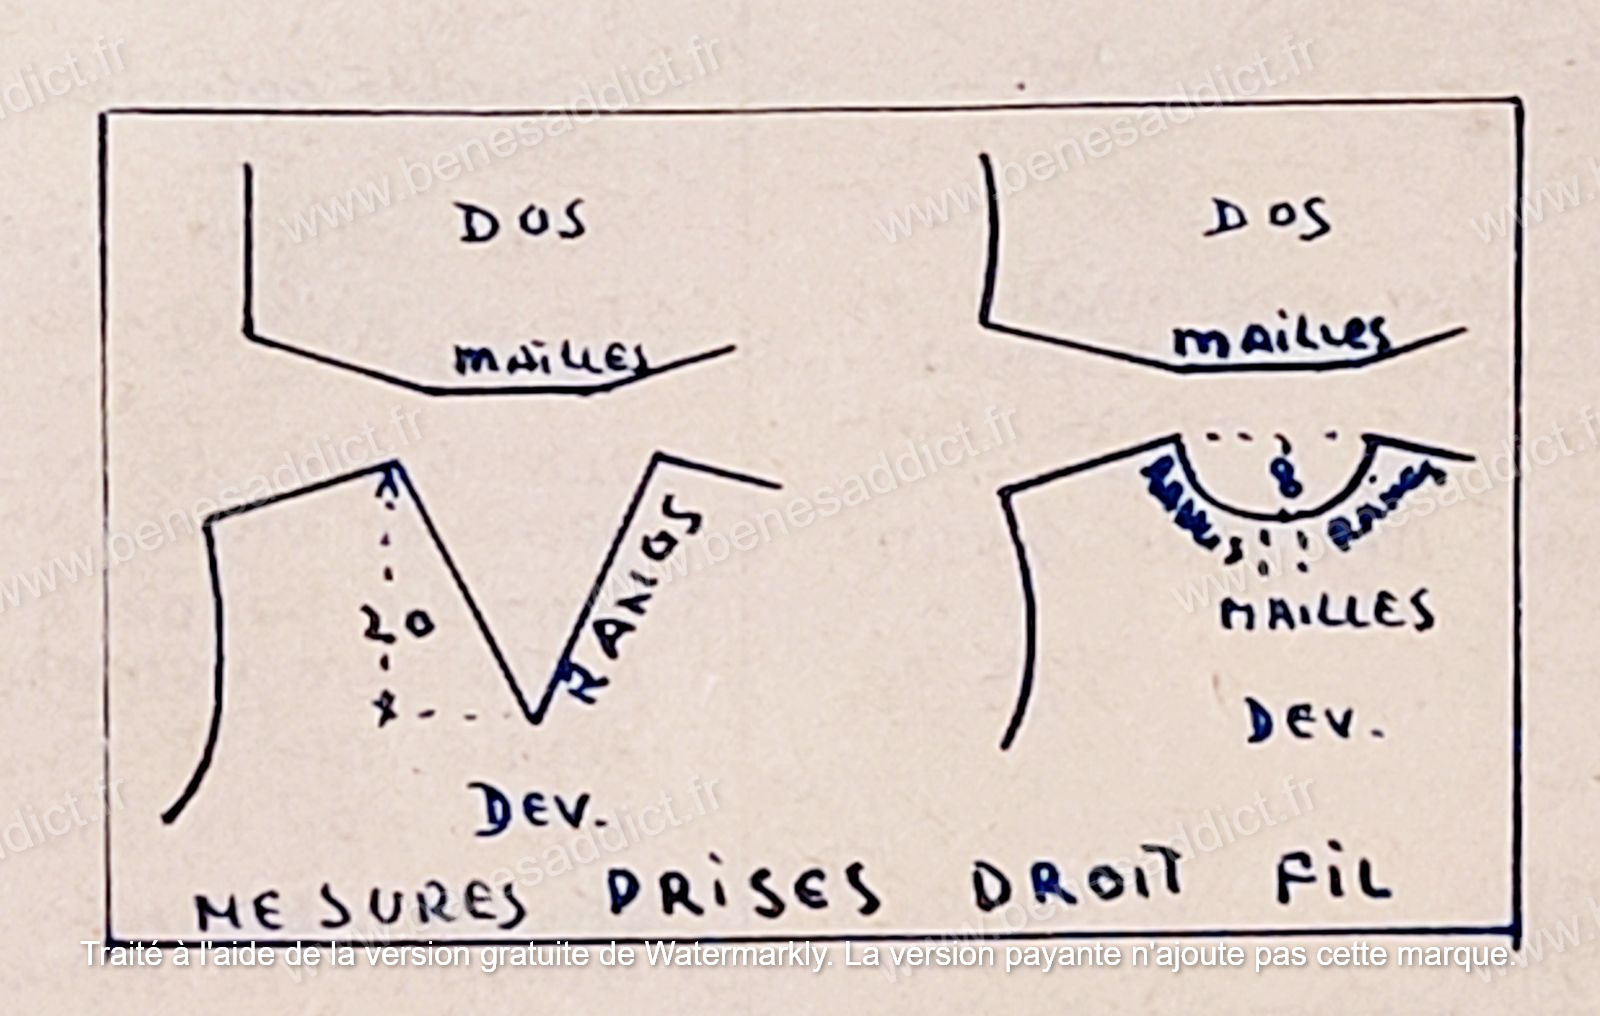 DOS
MAILLES
20
RANGS
DEV.
DOS
MAILLES
8
RANGS
RANGS
MAILLES
DEV.
MESURES PRISES DROIT FIL
Traité à l'aide de la version gratuite de Watermarkly. La version payante n'ajoute pas cette marque.
www.benesaddict.fr